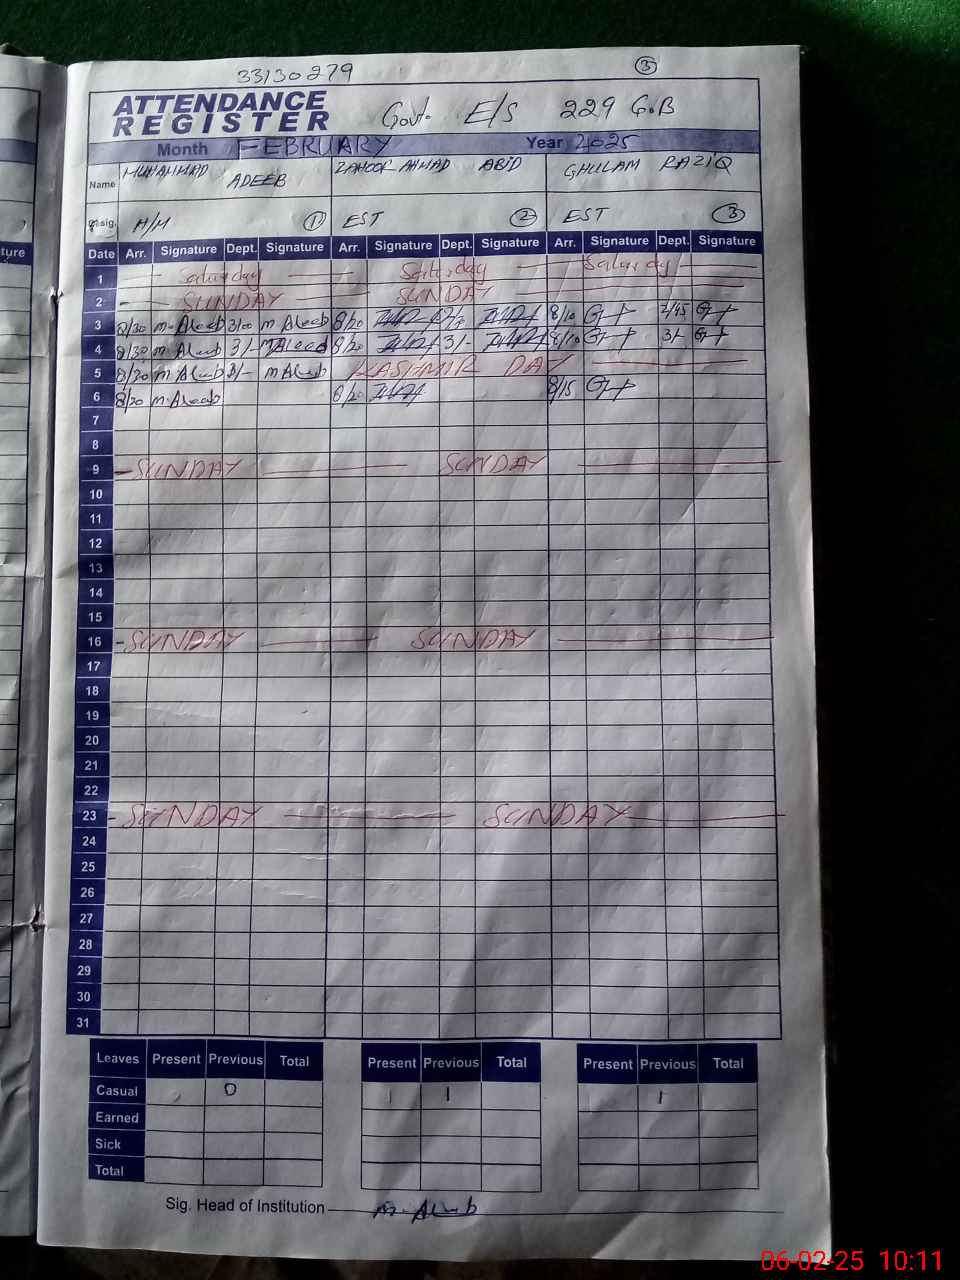 33130279 3
ATTENDANCE
REGISTER
Govt. E/S 229 G.B
Month FEBRUARY Year 2025
Name MUHAMMAD ADEEB ZAHOOR AHMAD ABID GHULAM RAZIQ
Desig. H/M 1 EST 2 EST 3
ture
Date Arr. Signature Dept. Signature Arr. Signature Dept. Signature Arr. Signature Dept. Signature
1 Saturday Saturday Saturday
2 SUNDAY SUNDAY
3 8/30 M. Adeeb 3/00 M. Adeeb 8/20 8/10 2/45
4 8/30 M. Adeeb 3/- M. Adeeb 8/20 3/- 8/10 3/-
5 8/30 M. Adeeb 3/- M. Adeeb KASHMIR DAY
6 8/30 M. Adeeb 8/20 8/15
7
8
9 SUNDAY SUNDAY
10
11
12
13
14
15
16 SUNDAY SUNDAY
17
18
19
20
21
22
23 SUNDAY SUNDAY
24
25
26
27
28
29
30
31
Leaves Present Previous Total Present Previous Total Present Previous Total
Casual 0 1 1 1
Earned
Sick
Total
Sig. Head of Institution M. Adeeb
06-02-25 10:11